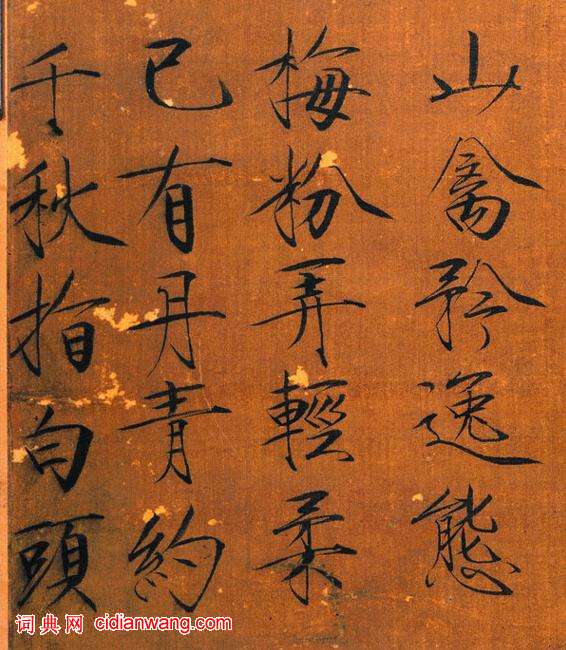 山禽矜逸態
梅粉弄輕柔
已有丹青約
千秋指白頭
词典网 cidianwang.com